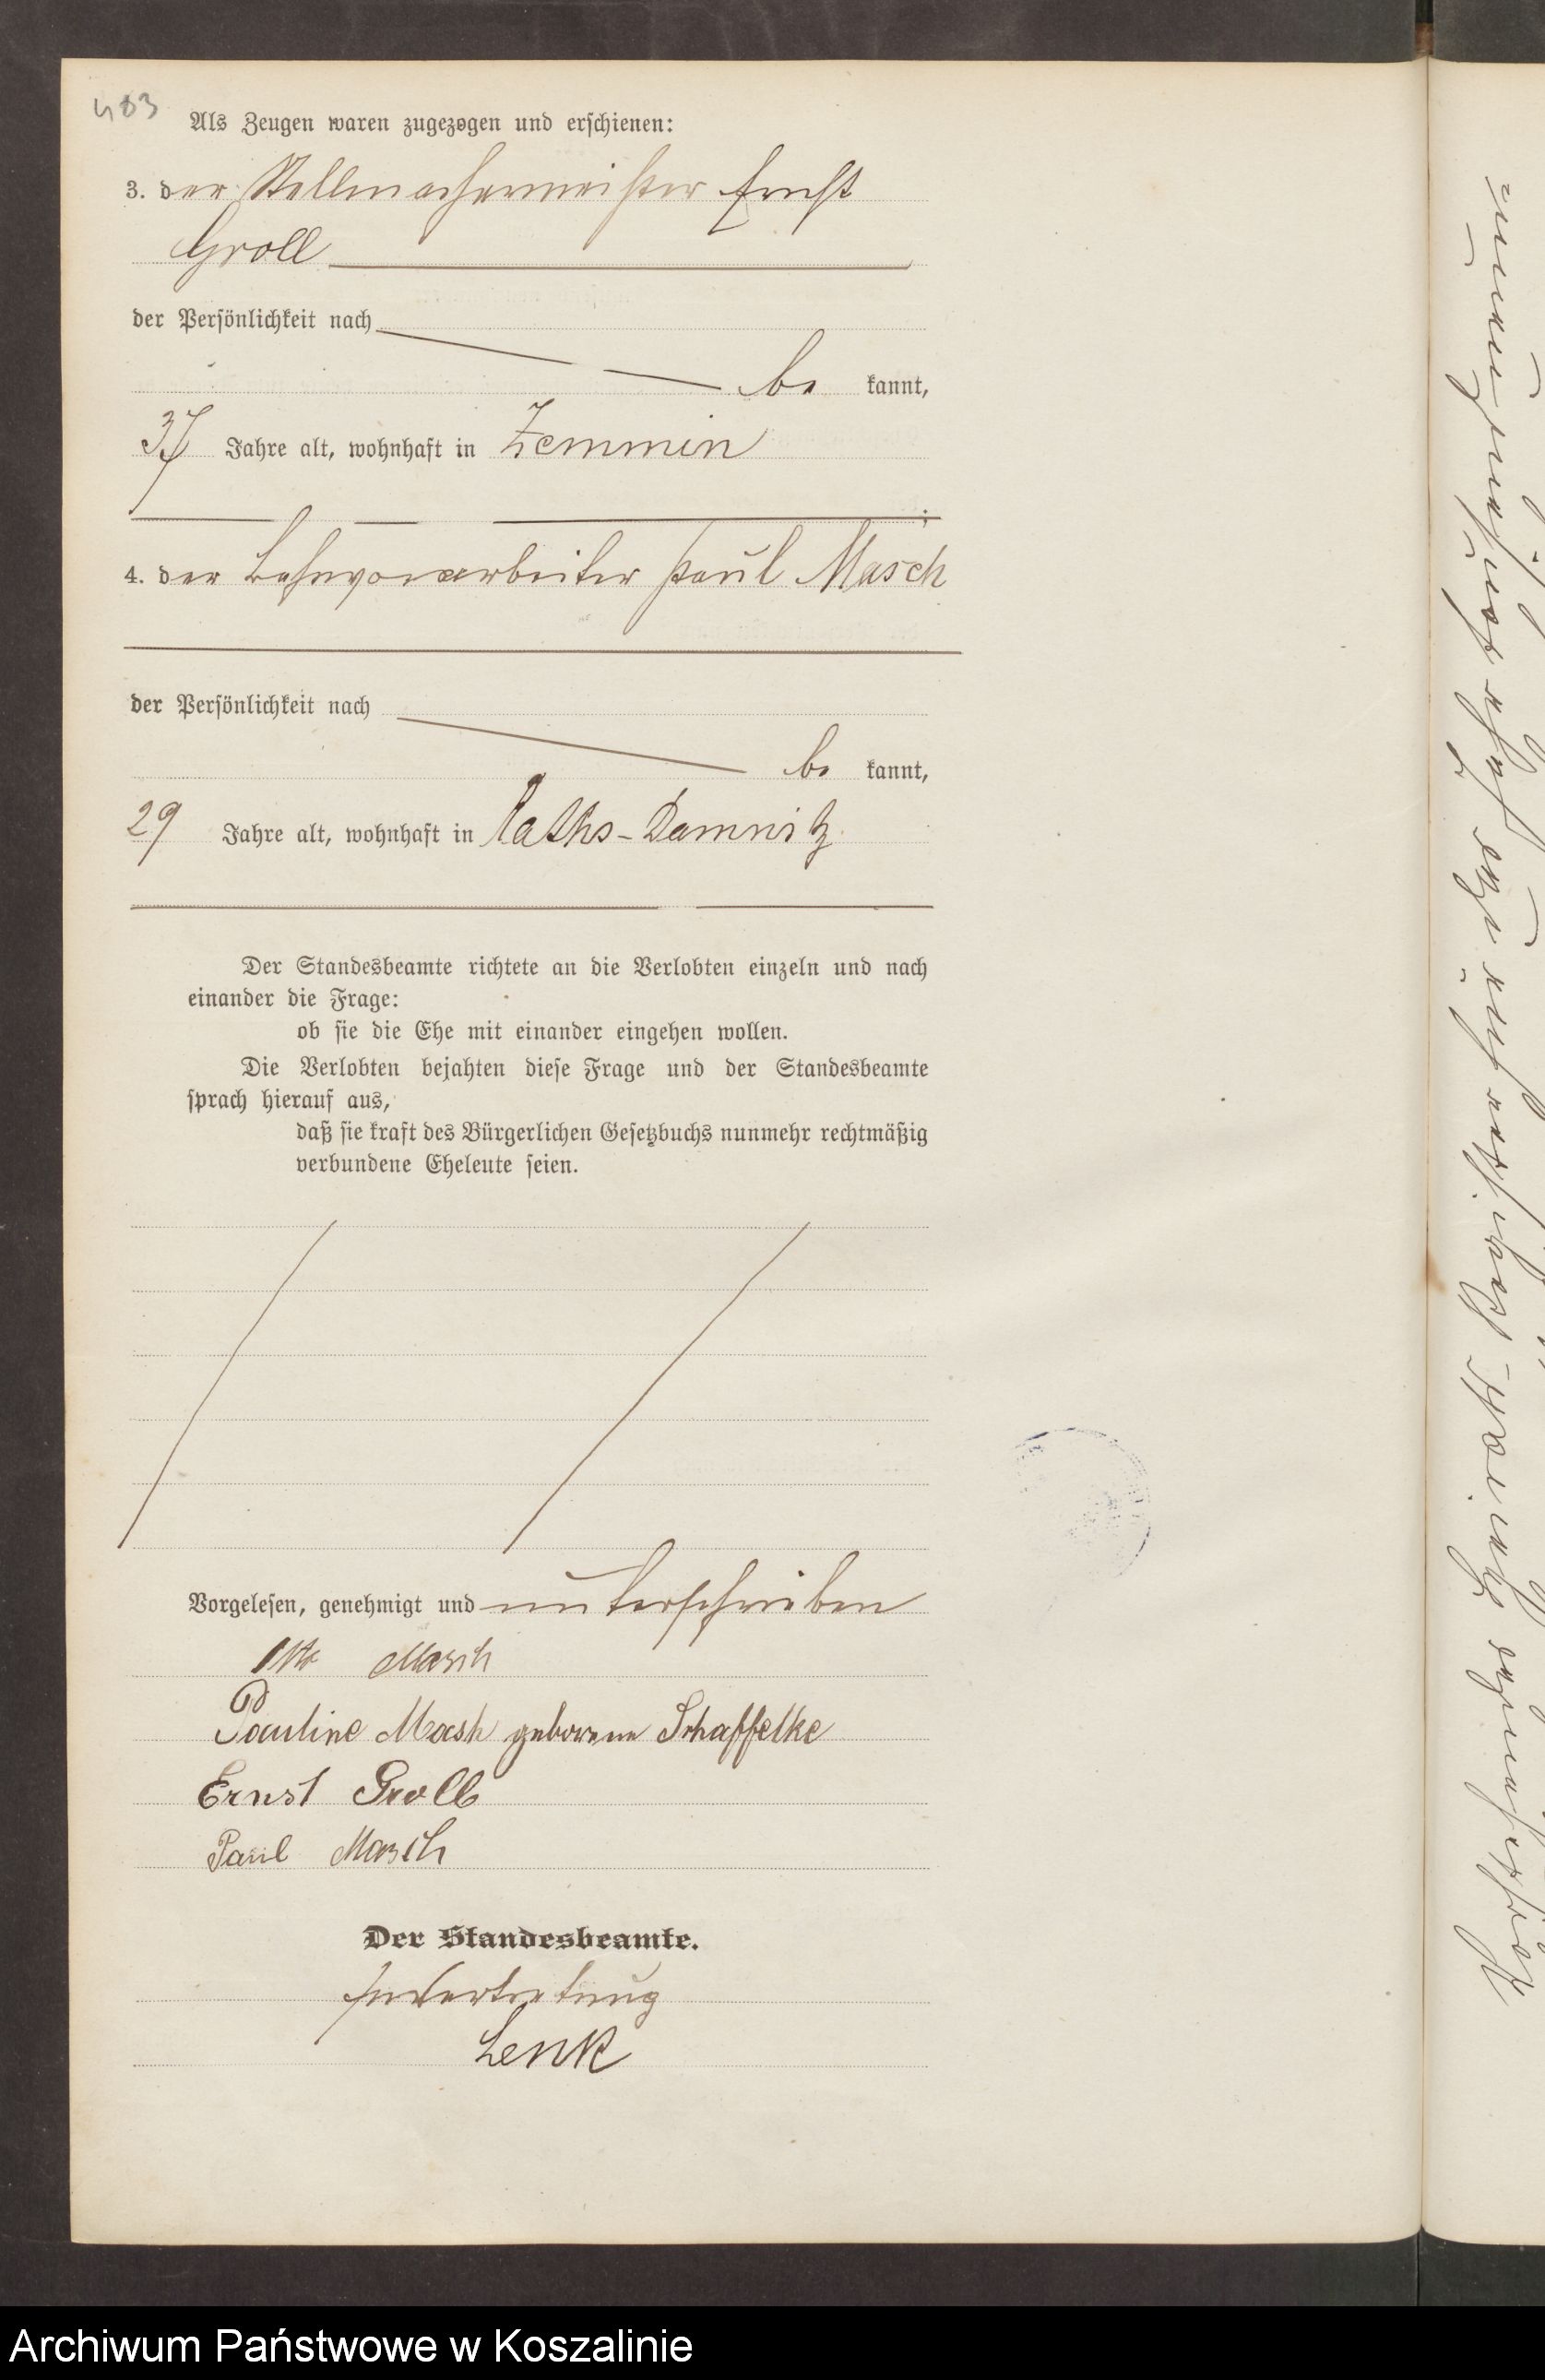 403
Als Zeugen waren zugezogen und erschienen:
3. der Stellmachermeister Ernst
Groll
der Persönlichkeit nach
be kannt,
37 Jahre alt, wohnhaft in Zemmin
;
4. der Paul Masch
der Persönlichkeit nach
be kannt,
29 Jahre alt, wohnhaft in Raths-Damnitz
Der Standesbeamte richtete an die Verlobten einzeln und nach
einander die Frage:
ob sie die Ehe mit einander eingehen wollen.
Die Verlobten bejahten diese Frage und der Standesbeamte
sprach hierauf aus,
daß sie kraft des Bürgerlichen Gesetzbuchs nunmehr rechtmäßig
verbundene Eheleute seien.
Vorgelesen, genehmigt und unterschrieben
Otto Masch
Pauline Mash geborene Schaffelke
Ernst Groll
Paul Masch
Der Standesbeamte.
In Vertretung
Lenk
Archiwum Państwowe w Koszalinie